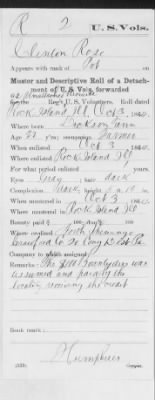 R 2 U.S. Vols.
Clinton Rose
Appears with rank of Pvt on
Muster and Descriptive Roll of a Detach-
ment of U.S. Vols. forwarded
Reg't U.S. Volunteers. Roll dated
Rock Island Ill Oct 3, 1864.
Where born Dickson Tenn
Age 21 y'rs; occupation Farmer
When enlisted Oct 3, 1864.
Where enlisted Rock Island Ill
For what period enlisted years.
Eyes Gray; hair dark
Complexion; height 5 ft. 10 in.
When mustered in Oct 3, 1864.
Where mustered in Rock Island Ill
Bounty paid $ 100; due $ 100
Where credited
Company to which assigned
Remarks: The Bounty due was
assumed and paid by the
locality receiving the credit
Book mark:
Humphries
Copyist.